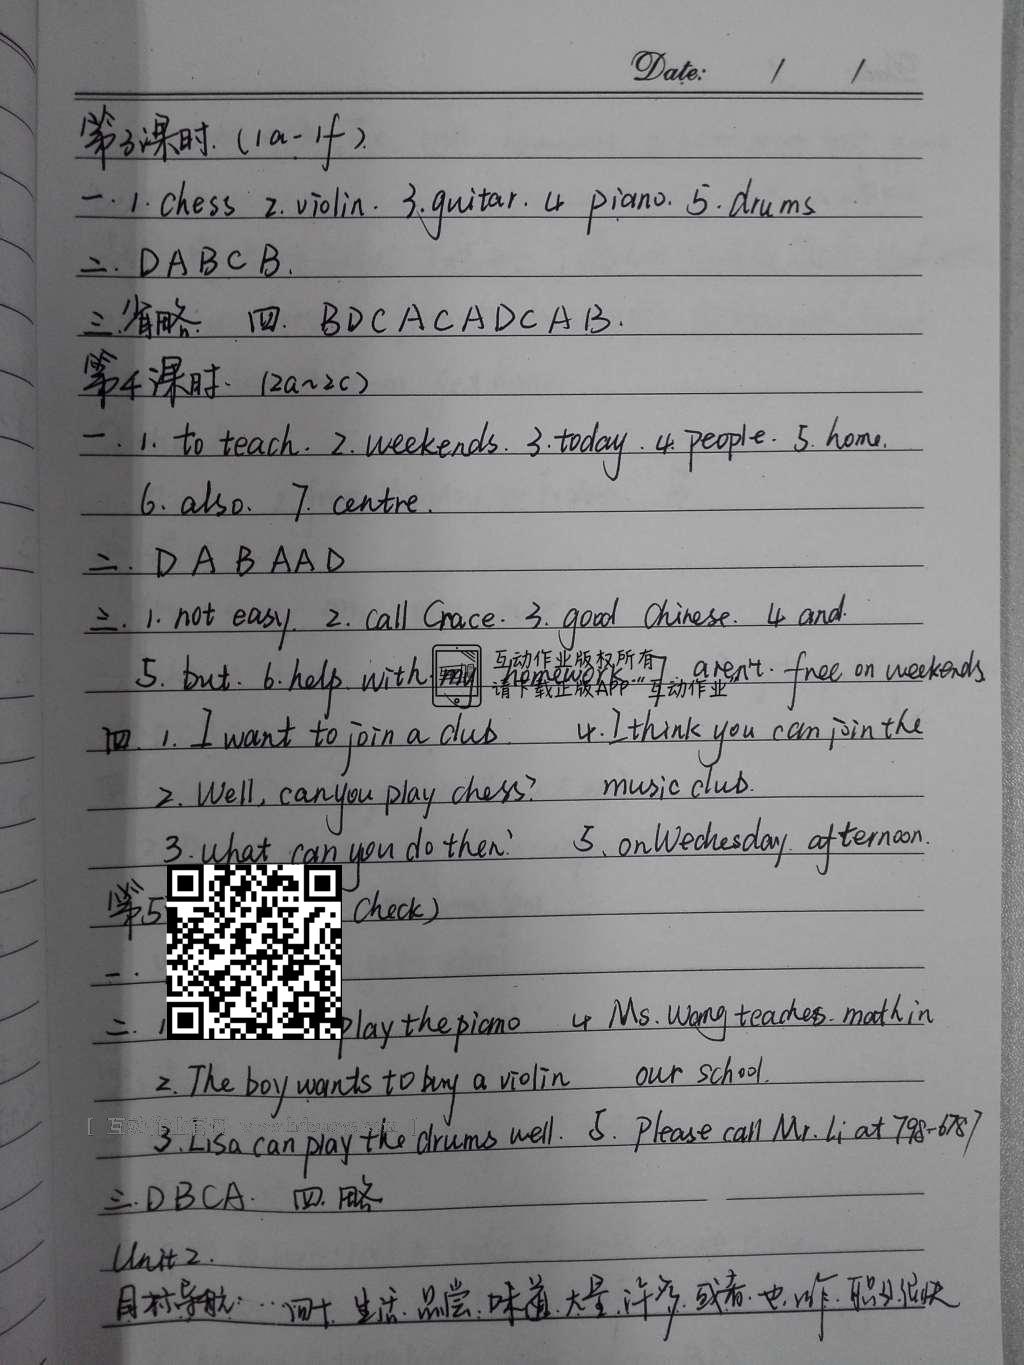 Date: / /
第3课时.(1a-1f).
一.1.chess 2.violin. 3.guitar. 4 piano. 5.drums
二. D A B C B.
三.省略. 四. B D C A C A D C A B.
第4课时. (2a~2c)
一. 1. to teach. 2. weekends. 3.today. 4. people. 5. home.
6. also. 7. centre.
二. D A B A A D
三. 1. not easy. 2. call Grace. 3. good Chinese. 4 and.
互动作业版权所有
5. but. 6. help with my homework. 7. aren't. free on weekends
请下载正版APP"互动作业"
四. 1. I want to join a club. 4. I think you can join the
2. Well, can you play chess? music club.
3. what can you do then? 5. on Wednesday afternoon.
第5 check)
一.
二. play the piano 4 Ms. Wang teaches math in
2. The boy wants to buy a violin our school.
3. Lisa can play the drums well. 5. Please call Mr. Li at 798-6787
三. D B C A. 四. 略
Unit 2.
生活. 品尝. 味道. 大量. 许多. 或者. 也.